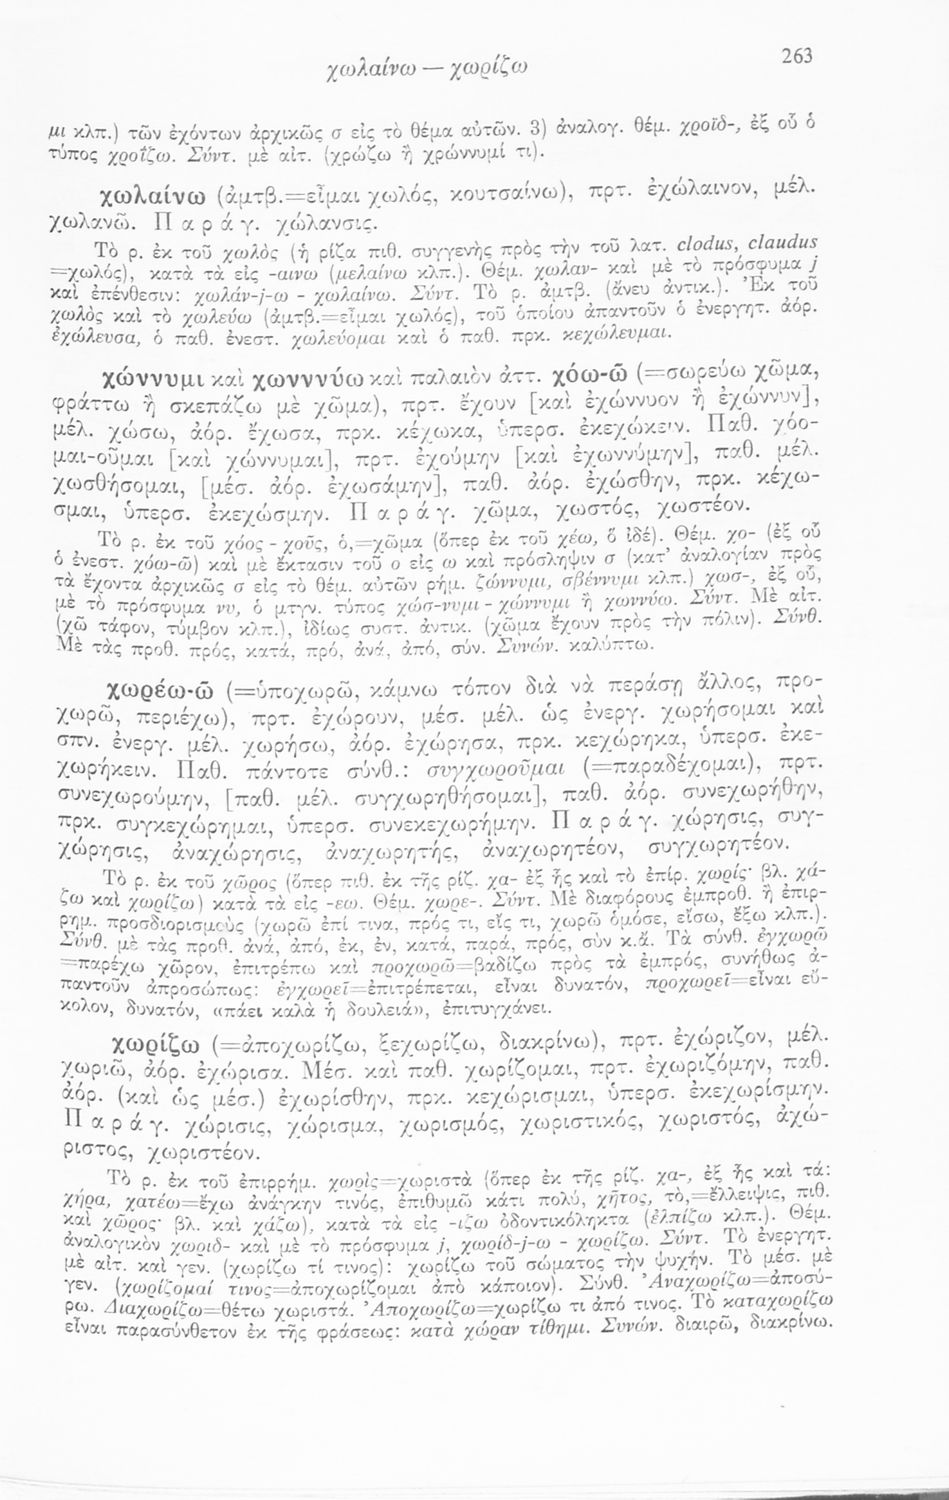 χωλαίνω — χωρίζω
263
μι κλπ.) τῶν ἐχόντων ἀρχικῶς σ εἰς τὸ θέμα αὐτῶν. 3) ἀναλογ. θέμ. χροϊδ-, ἐξ οὗ ὁ
τύπος χροΐζω. Σύντ. μὲ αἰτ. (χρώζω ἢ χρώννυμί τι).
χωλαίνω (ἀμτβ.=εἶμαι χωλός, κουτσαίνω), πρτ. ἐχώλαινον, μέλ.
χωλανῶ. Π α ρ ά γ. χώλανσις.
Τὸ ρ. ἐκ τοῦ χωλὸς (ἡ ρίζα πιθ. συγγενὴς πρὸς τὴν τοῦ λατ. clodus, claudus
=χωλός), κατὰ τὰ εἰς -αινω (μελαίνω κλπ.). Θέμ. χωλαν- καὶ μὲ τὸ πρόσφυμα j
καὶ ἐπένθεσιν: χωλάν-j-ω - χωλαίνω. Σύντ. Τὸ ρ. ἀμτβ. (ἄνευ ἀντικ.). Ἐκ τοῦ
χωλὸς καὶ τὸ χωλεύω (ἀμτβ.=εἶμαι χωλός), τοῦ ὁποίου ἀπαντοῦν ὁ ἐνεργητ. ἀόρ.
ἐχώλευσα, ὁ παθ. ἐνεστ. χωλεύομαι καὶ ὁ παθ. πρκ. κεχώλευμαι.
χώννυμι καὶ χωννύω καὶ παλαιὸν ἀττ. χόω-ῶ (=σωρεύω χῶμα,
φράττω ἢ σκεπάζω μὲ χῶμα), πρτ. ἔχουν [καὶ ἐχώννυον ἢ ἐχώννυν],
μέλ. χώσω, ἀόρ. ἔχωσα, πρκ. κέχωκα, ὑπερσ. ἐκεχώκειν. Παθ. χόο-
μαι-οῦμαι [καὶ χώννυμαι], πρτ. ἐχούμην [καὶ ἐχωννύμην], παθ. μέλ.
χωσθήσομαι, [μέσ. ἀόρ. ἐχωσάμην], παθ. ἀόρ. ἐχώσθην, πρκ. κέχω-
σμαι, ὑπερσ. ἐκεχώσμην. Π α ρ ά γ. χῶμα, χωστός, χωστέον.
Τὸ ρ. ἐκ τοῦ χόος - χοῦς, ὁ,=χῶμα (ὅπερ ἐκ τοῦ χέω, ὅ ἰδέ). Θέμ. χο- (ἐξ οὗ
ὁ ἐνεστ. χόω-ῶ) καὶ μὲ ἔκτασιν τοῦ ο εἰς ω καὶ πρόσληψιν σ (κατ’ ἀναλογίαν πρὸς
τὰ ἔχοντα ἀρχικῶς σ εἰς τὸ θέμ. αὐτῶν ρήμ. ζώννυμι, σβέννυμι κλπ.) χωσ-, ἐξ οὗ,
μὲ τὸ πρόσφυμα νυ, ὁ μτγν. τύπος χώσ-νυμι - χώννυμι ἢ χωννύω. Σύντ. Μὲ αἰτ.
(χῶ τάφον, τύμβον κλπ.), ἰδίως συστ. ἀντικ. (χῶμα ἔχουν πρὸς τὴν πόλιν). Σύνθ.
Μὲ τὰς προθ. πρός, κατά, πρό, ἀνά, ἀπό, σύν. Συνών. καλύπτω.
χωρέω-ῶ (=ὑποχωρῶ, κάμνω τόπον διὰ νὰ περάσῃ ἄλλος, προ-
χωρῶ, περιέχω), πρτ. ἐχώρουν, μέσ. μέλ. ὡς ἐνεργ. χωρήσομαι καὶ
σπν. ἐνεργ. μέλ. χωρήσω, ἀόρ. ἐχώρησα, πρκ. κεχώρηκα, ὑπερσ. ἐκε-
χωρήκειν. Παθ. πάντοτε σύνθ.: συγχωροῦμαι (=παραδέχομαι), πρτ.
συνεχωρούμην, [παθ. μέλ. συγχωρηθήσομαι], παθ. ἀόρ. συνεχωρήθην,
πρκ. συγκεχώρημαι, ὑπερσ. συνεκεχωρήμην. Π α ρ ά γ. χώρησις, συγ-
χώρησις, ἀναχώρησις, ἀναχωρητής, ἀναχωρητέον, συγχωρητέον.
Τὸ ρ. ἐκ τοῦ χῶρος (ὅπερ πιθ. ἐκ τῆς ρίζ. χα- ἐξ ἧς καὶ τὸ ἐπίρ. χωρίς· βλ. χά-
ζω καὶ χωρίζω) κατὰ τὰ εἰς -εω. Θέμ. χωρε-. Σύντ. Μὲ διαφόρους ἐμπροθ. ἢ ἐπιρ-
ρημ. προσδιορισμοὺς (χωρῶ ἐπί τινα, πρός τι, εἴς τι, χωρῶ ὁμόσε, εἴσω, ἔξω κλπ.).
Σύνθ. μὲ τὰς προθ. ἀνά, ἀπό, ἐκ, ἐν, κατά, παρά, πρός, σὺν κ.ἄ. Τὰ σύνθ. ἐγχωρῶ
=παρέχω χῶρον, ἐπιτρέπω καὶ προχωρῶ=βαδίζω πρὸς τὰ ἐμπρός, συνήθως ἀ-
παντοῦν ἀπροσώπως: ἐγχωρεῖ=ἐπιτρέπεται, εἶναι δυνατόν, προχωρεῖ=εἶναι εὔ-
κολον, δυνατόν, «πάει καλὰ ἡ δουλειά», ἐπιτυγχάνει.
χωρίζω (=ἀποχωρίζω, ξεχωρίζω, διακρίνω), πρτ. ἐχώριζον, μέλ.
χωριῶ, ἀόρ. ἐχώρισα. Μέσ. καὶ παθ. χωρίζομαι, πρτ. ἐχωριζόμην, παθ.
ἀόρ. (καὶ ὡς μέσ.) ἐχωρίσθην, πρκ. κεχώρισμαι, ὑπερσ. ἐκεχωρίσμην.
Π α ρ ά γ. χώρισις, χώρισμα, χωρισμός, χωριστικός, χωριστός, ἀχώ-
ριστος, χωριστέον.
Τὸ ρ. ἐκ τοῦ ἐπιρρήμ. χωρὶς=χωριστὰ (ὅπερ ἐκ τῆς ρίζ. χα-, ἐξ ἧς καὶ τά:
χήρα, χατέω=ἔχω ἀνάγκην τινός, ἐπιθυμῶ κάτι πολύ, χῆτος, τὸ,=ἔλλειψις, πιθ.
καὶ χῶρος· βλ. καὶ χάζω), κατὰ τὰ εἰς -ιζω ὀδοντικόληκτα (ἐλπίζω κλπ.). Θέμ.
ἀναλογικὸν χωριδ- καὶ μὲ τὸ πρόσφυμα j, χωρίδ-j-ω - χωρίζω. Σύντ. Τὸ ἐνεργητ.
μὲ αἰτ. καὶ γεν. (χωρίζω τί τινος): χωρίζω τοῦ σώματος τὴν ψυχήν. Τὸ μέσ. μὲ
γεν. (χωρίζομαί τινος=ἀποχωρίζομαι ἀπὸ κάποιον). Σύνθ. Ἀναχωρίζω=ἀποσύ-
ρω. Διαχωρίζω=θέτω χωριστά. Ἀποχωρίζω=χωρίζω τι ἀπό τινος. Τὸ καταχωρίζω
εἶναι παρασύνθετον ἐκ τῆς φράσεως: κατὰ χώραν τίθημι. Συνών. διαιρῶ, διακρίνω.